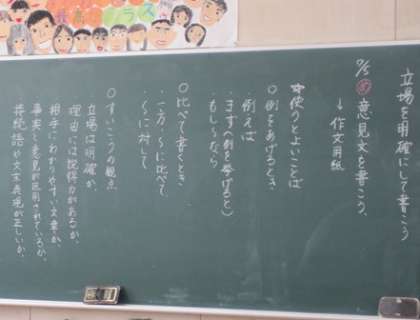 立場を明確にして書こう
9/5 め 意見文を書こう。
↓作文用紙
使うとよいことば
○例をあげるとき
・例えば
・まず(例を挙げると)
・もし〜なら
○比べて書くとき
・一方・〜に比べて
・〜に対して
○すいこうの観点
立場は明確か、
理由には説得力があるか、
相手にわかりやすい文章か、
事実と意見が区別されているか、
共通語や文末表現が正しいか、